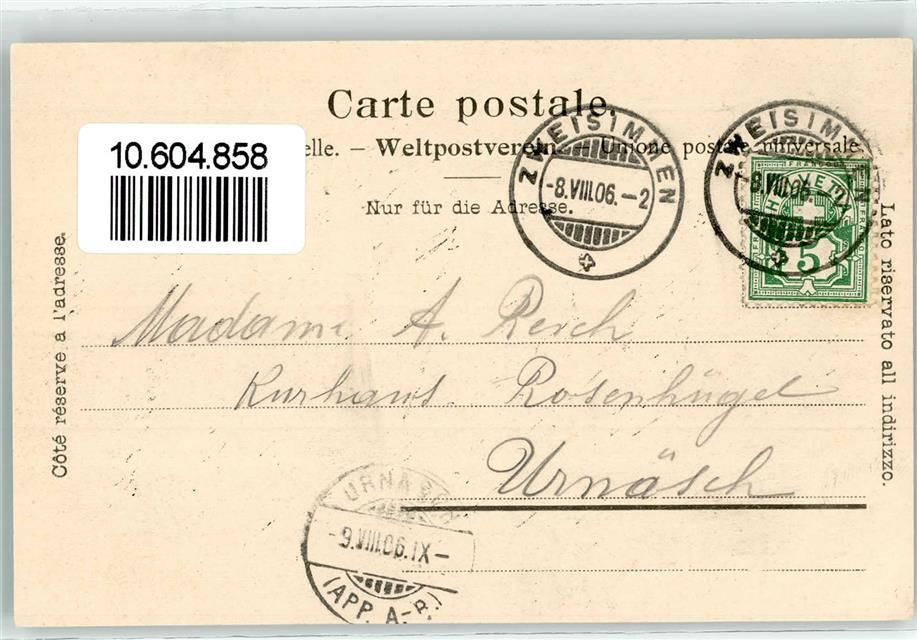 Carte postale.
10.604.858
elle. – Weltpostverein. – Unione postale universale
Nur für die Adresse.
ZWEISIMMEN
-8.VIII.06.-2
ZWEISIMMEN
-8.VIII.06.
FRANCO
HELVETIA
5
Côté réservé à l'adresse.
Lato riservato all indirizzo.
Madame A. Resch
Kurhaus Rosenhügel
Urnäsch
URNÄSCH
-9.VIII.06.XI-
(APP. A.-R.)